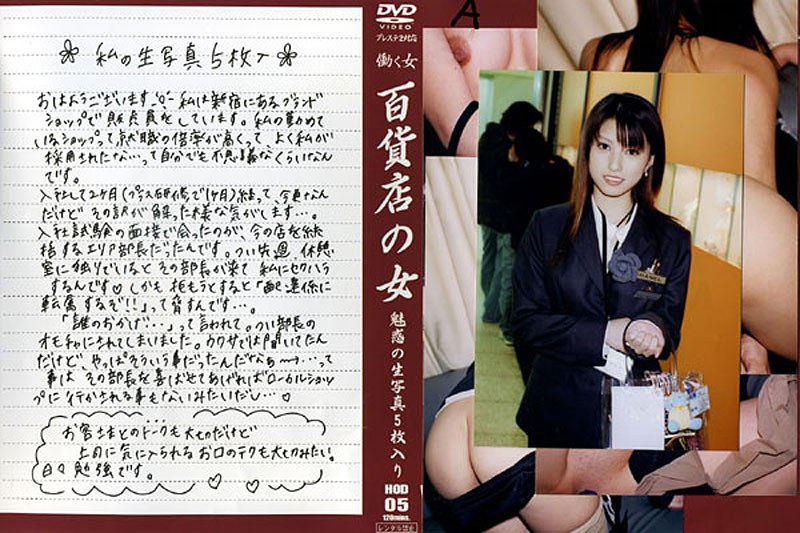 私の生写真5枚入
おはようございます 私は新宿にあるブランド
ショップで販売員をしています。私の勤めて
いるショップって就職の倍率が高くって、よく私が
採用されたな…って自分でも不思議なくらいなん
です。
入社して2ヶ月(プラス研修で1ヶ月)経って、今更なん
だけど その訳が解った様な気がします…。
入社試験の面接で会ったのが、今の店を統
括するエリア部長だったんです。つい先週、休憩
室に独りでいると その部長が来て 私にセクハラ
するんです♡ しかも拒もうとすると「配達係に
転属するぞ!!」って脅すんです…。
「誰のおかげ…」って言われて。つい部長の
オモチャにされてしまいました。ウワサでは聞いてたん
だけど、やっぱそういう事だったんだなぁ〜…って
事は その部長を喜ばせてあげればローカルショッ
プに行かされる事もないみたいだし…♡
お客さまとのトークも大切だけど
上司に気に入られる お口のテクも大切みたい。
日々勉強です。
DVD
VIDEO
プレステ2対応
働く女
百貨店の女
魅惑の生写真5枚入り
HOD
05
120mins.
レンタル禁止
A